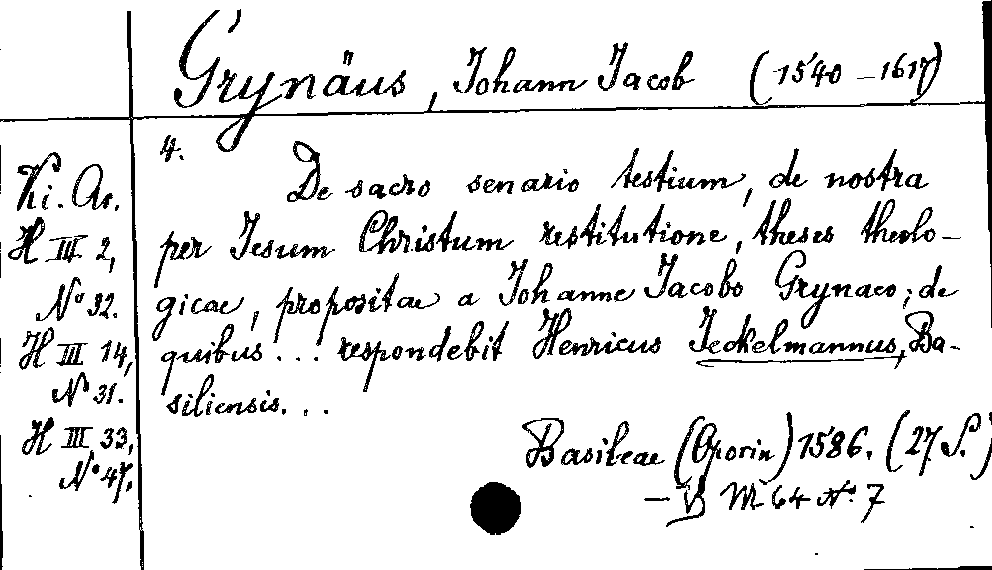 Grynäus, Johann Jacob (1540-1617)
4.
De sacro senario testium, de nostra
per Jesum Christum restitutione, theses theolo-
gicae, propositae a Johanne Jacobo Grynaeo; de
quibus... respondebit Henricus Jeckelmannus, Ba-
siliensis...
Basileae (Oporin) 1586. (27 S.)
— B M 64 No. 7
Ki. Ar.
H III 2,
No 32.
H III 14,
No 31.
H III 33,
No 47.